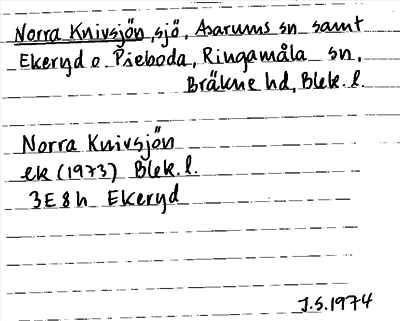 Norra Knivsjön, sjö, Asarums sn samt
Ekeryd o Pieboda, Ringamåla sn,
Bräkne hd, Blek. l.
Norra Knivsjön
ek (1973) Blek. l.
3E8h Ekeryd
J.S. 1974